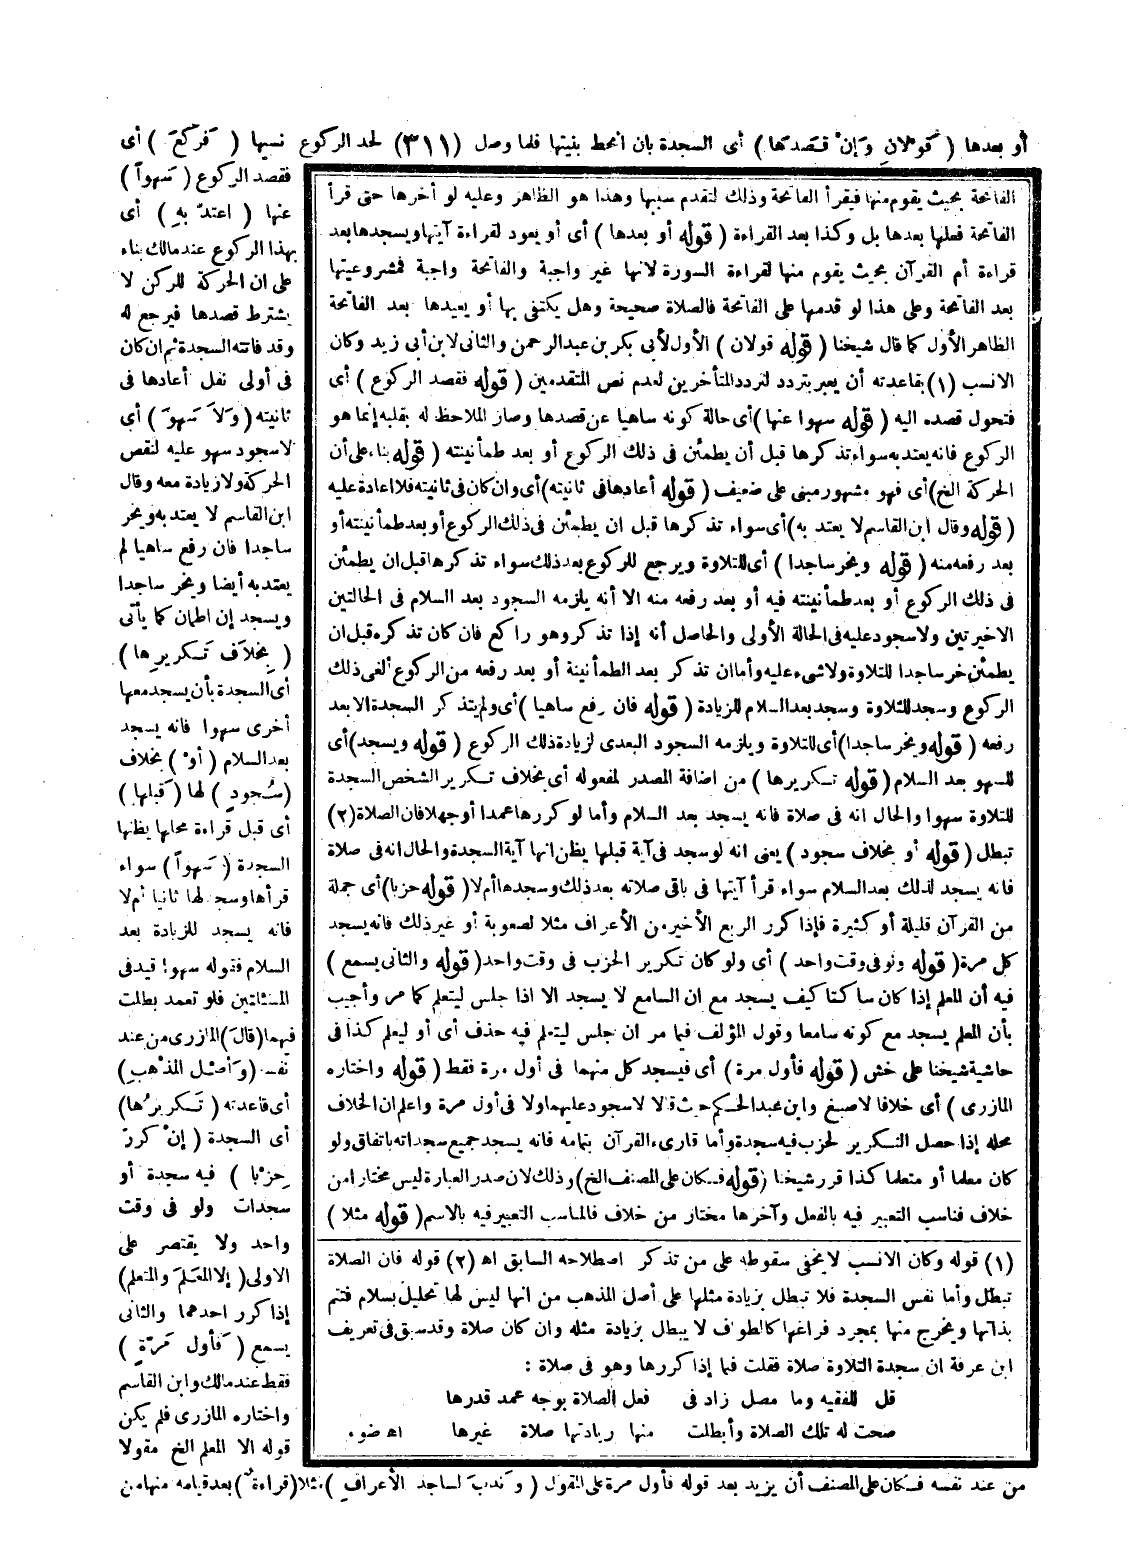 أو بعدها ( قولان وإن قصدها ) أى السجدة بان انحط بنيتها فلما وصل (٣١١) لحد الركوع نسيها ( فركع ) أى
فقصد الركوع ( سهواً )
عنها ( اعتد به ) أى
بهذا الركوع عند مالك بناء
على ان الحركة للركن لا
يشترط قصدها فيرجع له
وقد فاتته السجدة ثم ان كان
فى أولى نفل أعادها فى
ثانيته ( ولا سهو ) أى
لا سجود سهو عليه لنقص
الحركة ولا زيادة معه وقال
ابن القاسم لا يعتد به ويخر
ساجدا فان رفع ساهيا لم
يعتد به أيضا ويخر ساجدا
ويسجد إن اطمان كما يأتى
( بخلاف تكريرها )
أى السجدة بأن يسجد معها
أخرى سهوا فانه يسجد
بعد السلام ( أو ) بخلاف
(سجود ) لها ( قبلها )
أى قبل قراءة محلها يظنها
السجدة ( سهواً ) سواء
قرأها وسجد لها ثانيا أم لا
فانه يسجد للزيادة بعد
السلام فقوله سهوا قيد فى
المسئلتين فلو تعمد بطلت
فيهما ( قال ) المازرى من عند
نفسه ( وأصل المذهب )
أى قاعدته ( تكريرها)
أى السجدة ( إن كرر
حزبا ) فيه سجدة أو
سجدات ولو فى وقت
واحد ولا يقتصر على
الاولى ( إلا المعلم والمتعلم)
إذا كرر احدهما والثانى
يسمع ( فأول مرة )
فقط عند مالك وابن القاسم
واختاره المازرى فلم يكن
قوله الا المعلم الخ مقولا
من عند نفسه فكان على المصنف أن يزيد بعد قوله فأول مرة على القول ( وندب لساجد الأعراف ) مثلا (قراءة ) بعد قيامه منها من
الفاتحة بحيث يقوم منها فيقرأ الفاتحة وذلك لتقدم سببها وهذا هو الظاهر وعليه لو أخرها حتى قرأ
الفاتحة فعلها بعدها بل وكذا بعد القراءة ( قوله أو بعدها ) أى أو يعود لقراءة آيتها ويسجدها بعد
قراءة أم القرآن بحيث يقوم منها لقراءة السورة لانها غير واجبة والفاتحة واجبة فمشروعيتها
بعد الفاتحة وعلى هذا لو قدمها على الفاتحة فالصلاة صحيحة وهل يكتفى بها أو يعيدها بعد الفاتحة
الظاهر الأول كما قال شيخنا ( قوله قولان ) الأول لأبى بكر بن عبد الرحمن والثانى لابن أبى زيد وكان
الانسب (١) بقاعدته أن يعبر بتردد لتردد المتأخرين لعدم نص المتقدمين ( قوله فقصد الركوع ) أى
فتحول قصده اليه ( قوله سهوا عنها ) أى حالة كونه ساهيا عن قصدها وصار الملاحظ له بقلبه إنما هو
الركوع فانه يعتد به سواء تذكرها قبل أن يطمئن فى ذلك الركوع أو بعد طمأنينته ( قوله بناء على أن
الحركة الخ ) أى فهو مشهور مبنى على ضعيف ( قوله أعادها فى ثانيته ) أى وان كان فى ثانيته فلا اعادة عليه
( قوله وقال ابن القاسم لا يعتد به ) أى سواء تذكرها قبل ان يطمئن فى ذلك الركوع أو بعد طمأنينته أو
بعد رفعه منه ( قوله ويخر ساجدا ) أى للتلاوة ويرجع للركوع بعد ذلك سواء تذكرها قبل ان يطمئن
فى ذلك الركوع أو بعد طمأنينته فيه أو بعد رفعه منه الا أنه يلزمه السجود بعد السلام فى الحالتين
الاخيرتين ولا سجود عليه فى الحالة الأولى والحاصل أنه إذا تذكر وهو راكع فان كان تذكره قبل ان
يطمئن خر ساجدا للتلاوة ولا شىء عليه وأما ان تذكر بعد الطمأنينة أو بعد رفعه من الركوع ألغى ذلك
الركوع وسجد للتلاوة وسجد بعد السلام للزيادة ( قوله فان رفع ساهيا ) أى ولم يتذكر السجدة الا بعد
رفعه ( قوله ويخر ساجدا) أى للتلاوة ويلزمه السجود البعدى لزيادة ذلك الركوع ( قوله ويسجد ) أى
للسهو بعد السلام ( قوله تكريرها ) من اضافة المصدر لمفعوله أى بخلاف تكرير الشخص السجدة
للتلاوة سهوا والحال انه فى صلاة فانه يسجد بعد السلام وأما لو كررها عمدا أو جهلا فان الصلاة (٢)
تبطل ( قوله أو بخلاف سجود ) يعنى انه لو سجد فى آية قبلها يظن انها آية السجدة والحال انه فى صلاة
فانه يسجد لذلك بعد السلام سواء قرأ آيتها فى باقى صلاته بعد ذلك وسجدها أم لا ( قوله حزبا ) أى جملة
من القرآن قليلة أو كثيرة فإذا كرر الربع الأخير من الأعراف مثلا لصعوبة أو غير ذلك فانه يسجد
كل مرة ( قوله ولو فى وقت واحد ) أى ولو كان تكرير الحزب فى وقت واحد ( قوله والثانى يسمع )
فيه أن المعلم إذا كان ساكتا كيف يسجد مع ان السامع لا يسجد الا اذا جلس ليتعلم كما مر وأجيب
بأن المعلم يسجد مع كونه سامعا وقول المؤلف فيما مر ان جلس ليتعلم فيه حذف أى أو ليعلم كذا فى
حاشية شيخنا على خش ( قوله فأول مرة ) أى فيسجد كل منهما فى أول مرة فقط ( قوله واختاره
المازرى ) أى خلافا لاصبغ وابن عبد الحكم حيث قالا لا سجود عليهما ولا فى أول مرة واعلم ان الخلاف
محله إذا حصل التكرير لحزب فيه سجدة وأما قارىء القرآن بتمامه فانه يسجد جميع سجداته باتفاق ولو
كان معلما أو متعلما كذا قرر شيخنا ( قوله فكان على المصنف الخ ) وذلك لان صدر العبارة ليس مختارا من
خلاف فناسب التعبير فيه بالفعل وآخرها مختار من خلاف فالمناسب التعبير فيه بالاسم ( قوله مثلا )
(١) قوله وكان الانسب لا يخفى سقوطه على من تذكر اصطلاحه السابق اه (٢) قوله فان الصلاة
تبطل وأما نفس السجدة فلا تبطل بزيادة مثلها على أصل المذهب من انها ليس لها تحليل بسلام فتتم
بذاتها ويخرج منها بمجرد فراغها كالطواف لا يبطل بزيادة مثله وان كان صلاة وقد سبق فى تعريف
ابن عرفة ان سجدة التلاوة صلاة فقلت فيما إذا كررها وهو فى صلاة :
قل للفقيه وما مصل زاد فى فعل الصلاة بوجه عمد قدرها
صحت له تلك الصلاة وأبطلت منها زيادتها صلاة غيرها اه ضوء